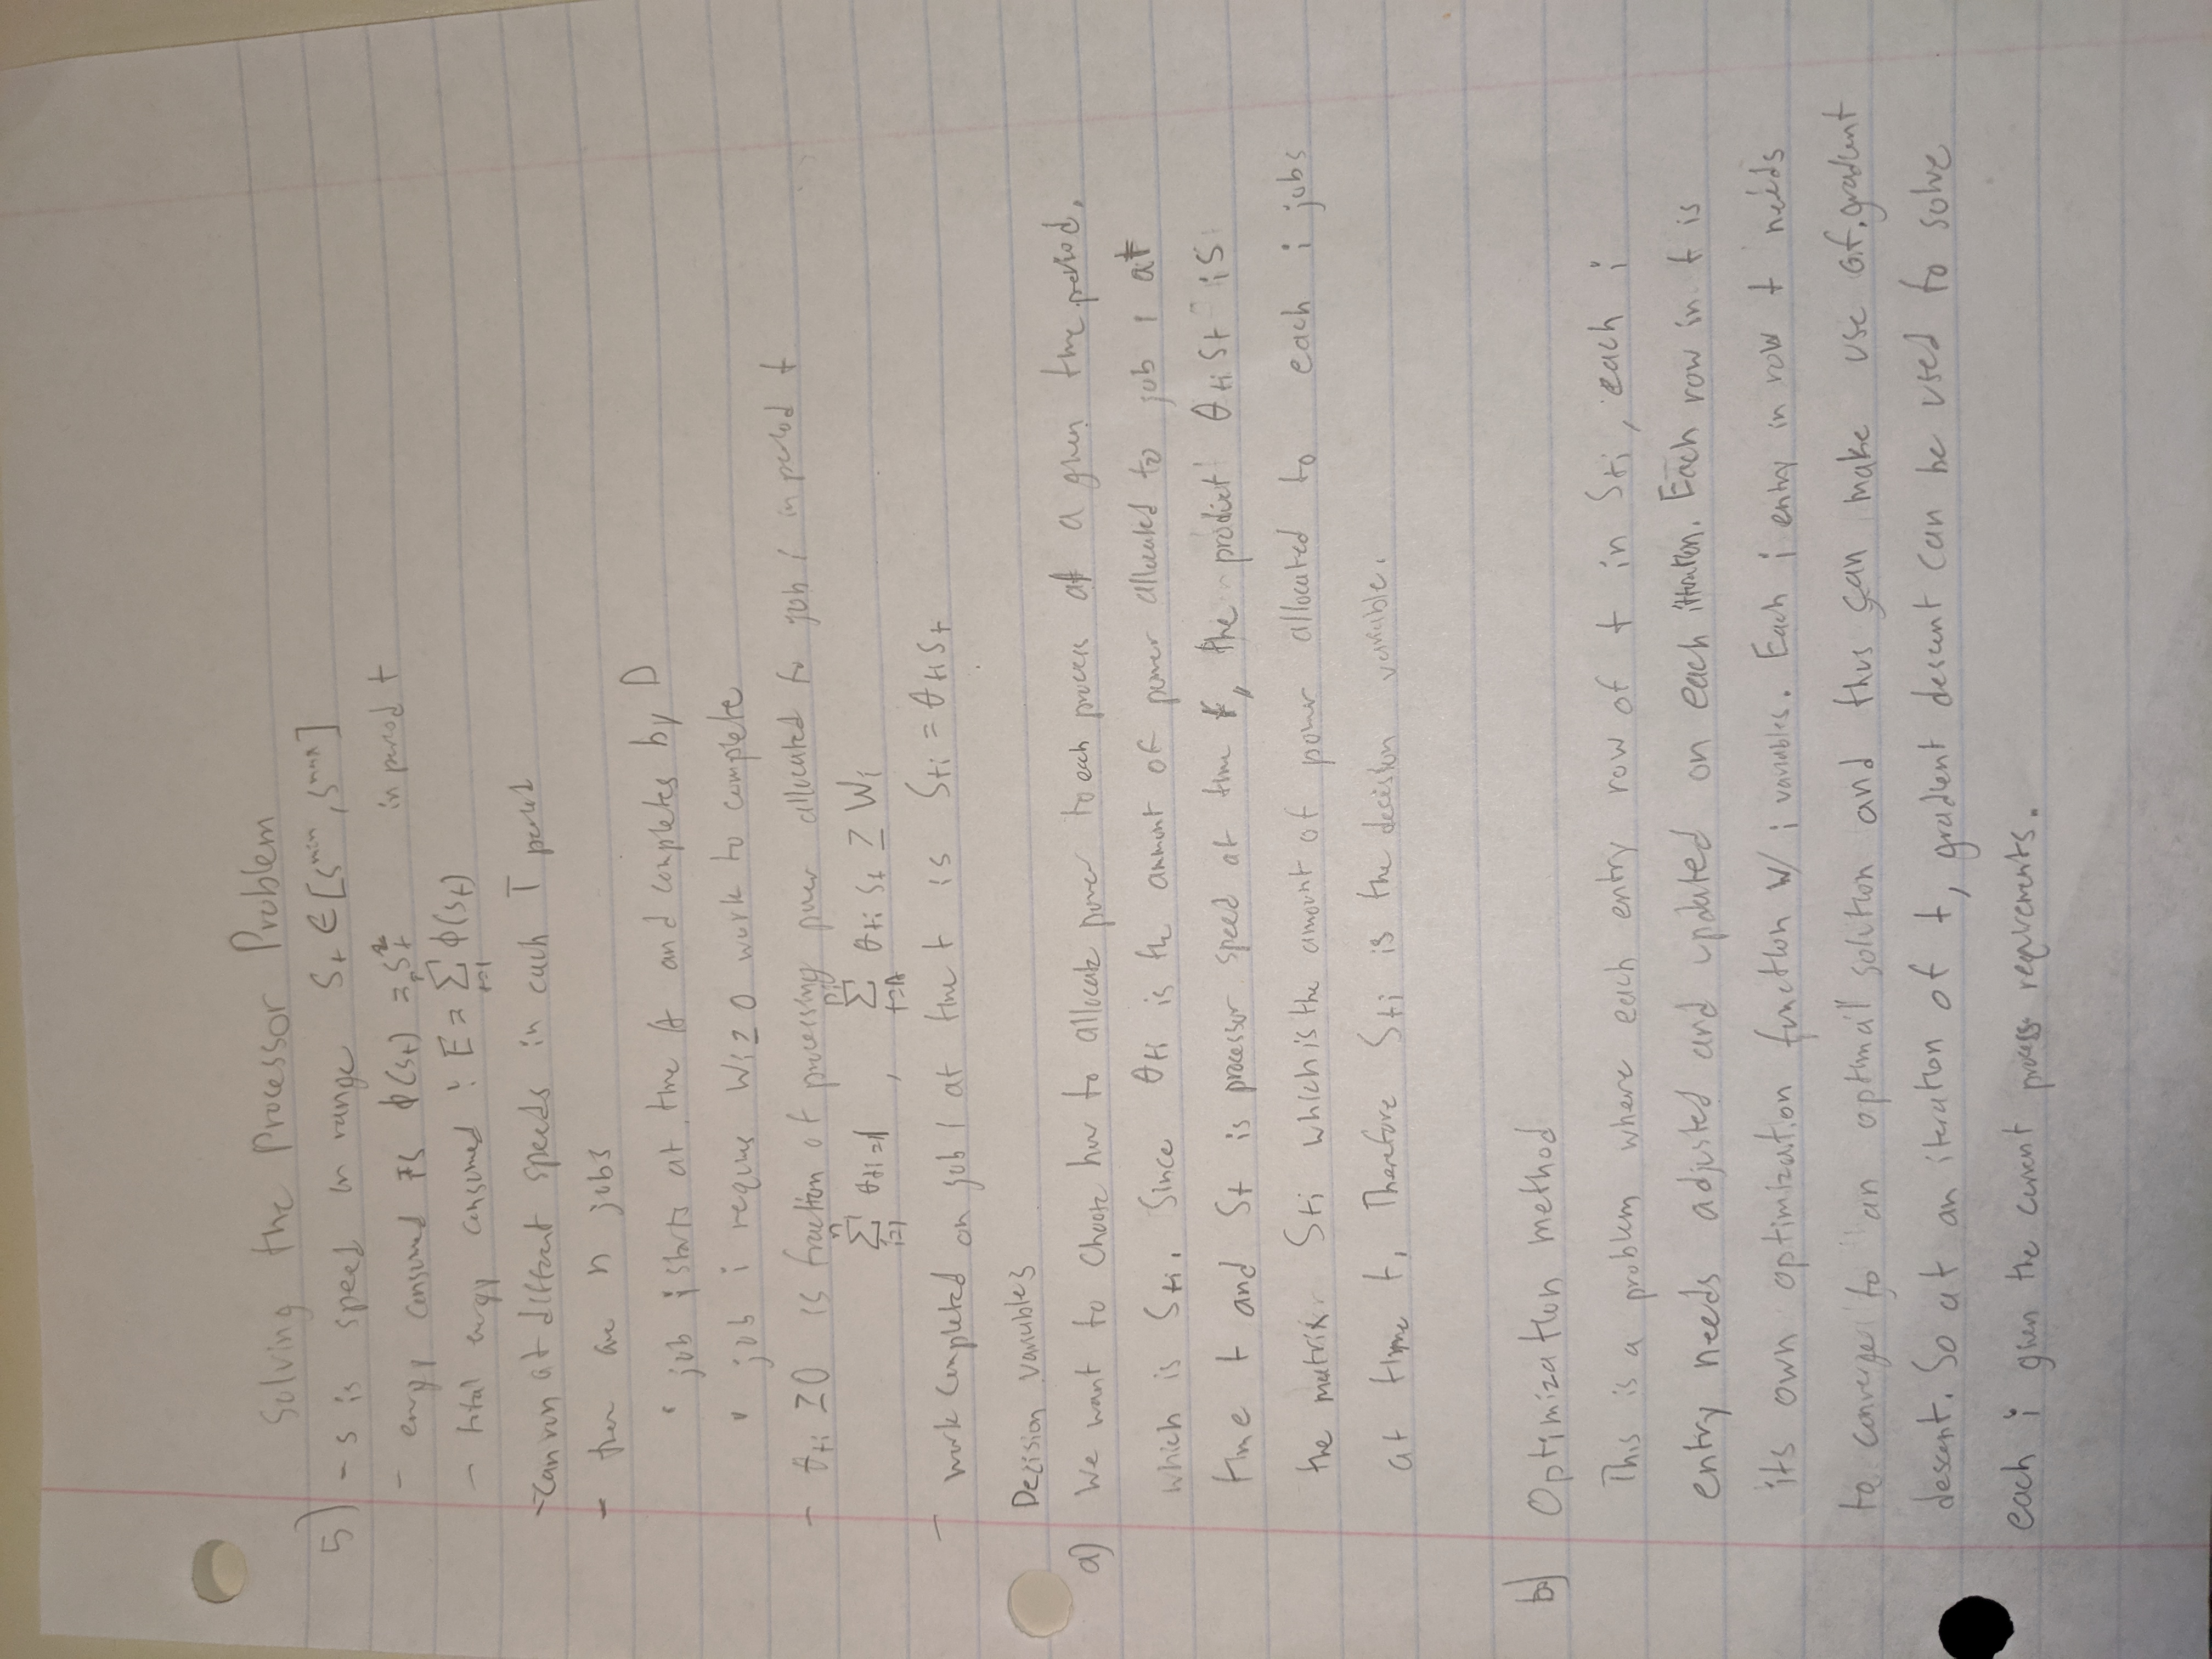 Solving the Processor Problem
5) - s is speed in range St ∈ [s^min, s^max]
- energy consumed is ϕ(st) = st^2 in period t
- total energy consumed : E = Σ_{t=1}^{T} ϕ(st)
- can run at different speeds in each T period
- there are n jobs
• job i starts at time A and completes by D
• job i requires Wi ≥ 0 work to complete
- θti ≥ 0 is fraction of processing power allocated to job i in period t
Σ_{i=1}^{n} θti = 1 , Σ_{t=A}^{Di} θti St ≥ Wi
- work completed on job i at time t is Sti = θti St
Decision variables
a) We want to choose how to allocate power to each process at a given time period,
which is Sti. Since θti is the ammont of power allocated to job i at
time t and St is processor speed at time t, the product θti St is
the matrix Sti which is the amount of power allocated to each i jobs
at time t. Therefore Sti is the decision variable.
b) Optimization method
This is a problem where each entry row of t in Sti, each i
entry needs adjusted and updated on each itteration. Each row in t is
its own optimization function w/ i variables. Each i entry in row t needs
to converge to an optimal solution and thus can make use of gradient
descent. So at an iteration of t, gradient descent can be used to solve
each i given the current process requirements.